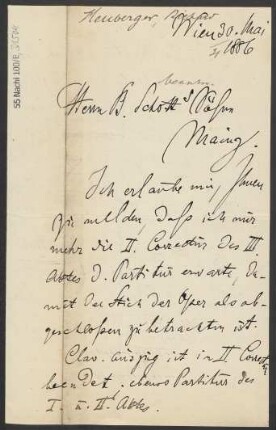 Heuberger, Richard
Wien 30. Mai
1886
55 Nachl 100/B,
beantw.
Herrn B. Schott's Söhne
Mainz.
Ich erlaube mir, Ihnen
zu melden, daß ich nur
mehr die II. Correctur des III.
Aktes d. Partitur erwarte, da-
mit der Stich der Oper als ab-
geschloßen zu betrachten ist.
Clav. auszug ist in II. Correct.
beendet. ebenso Partitur des
I. u. II. Aktes.